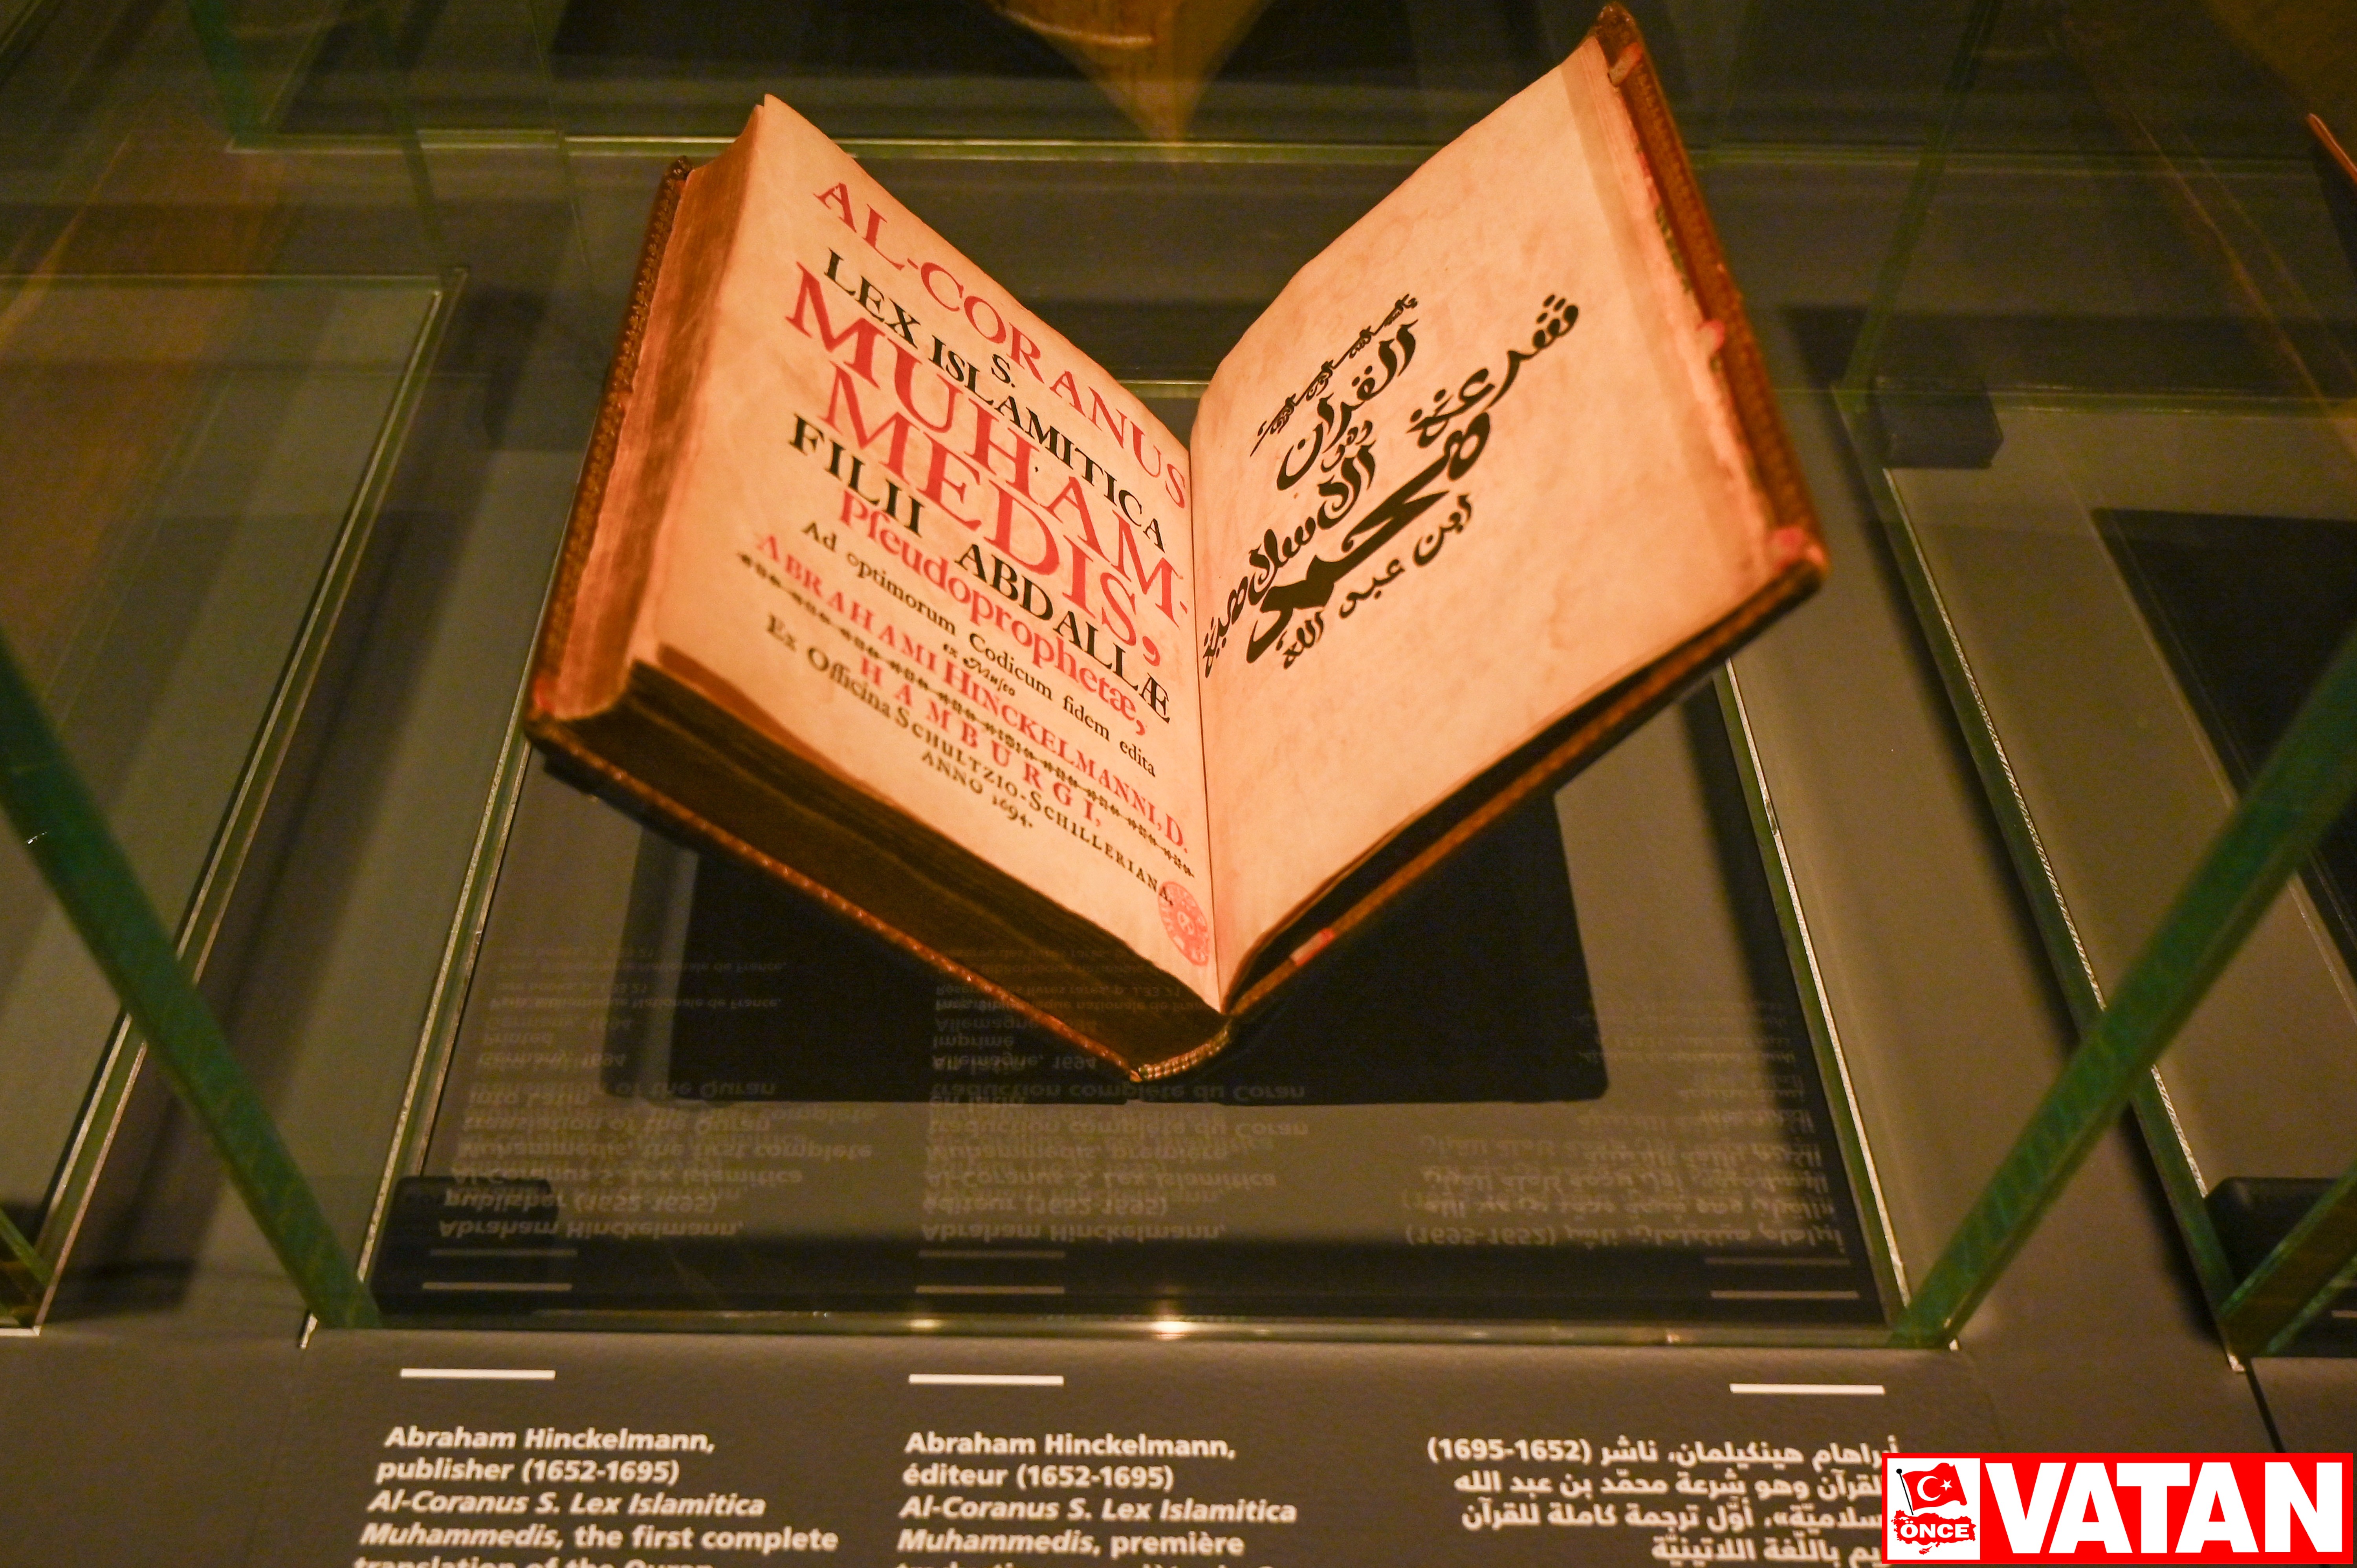 AL-CORANUS
S.
LEX ISLAMITICA
MUHAM-
MEDIS,
FILII ABDALLÆ
Pſeudoprophetæ,
Ad optimorum Codicum fidem edita
ex Muſeo
ABRAHAMI HINCKELMANNI, D.
HAMBURGI,
Ex Officina SCHULTZIO-SCHILLERIANA,
ANNO 1694.
القران
الاسلامية
شرعة
محمد
ابن عبد الله
Abraham Hinckelmann,
publisher (1652-1695)
Al-Coranus S. Lex Islamitica
Muhammedis, the first complete
translation of the Quran
Abraham Hinckelmann,
éditeur (1652-1695)
Al-Coranus S. Lex Islamitica
Muhammedis, première
أبراهام هينكيلمان، ناشر (1652-1695)
القرآن وهو شرعة محمّد بن عبد الله
سلاميّة»، أوّل ترجمة كاملة للقرآن
باللّغة اللاتينيّة
ÖNCE
VATAN